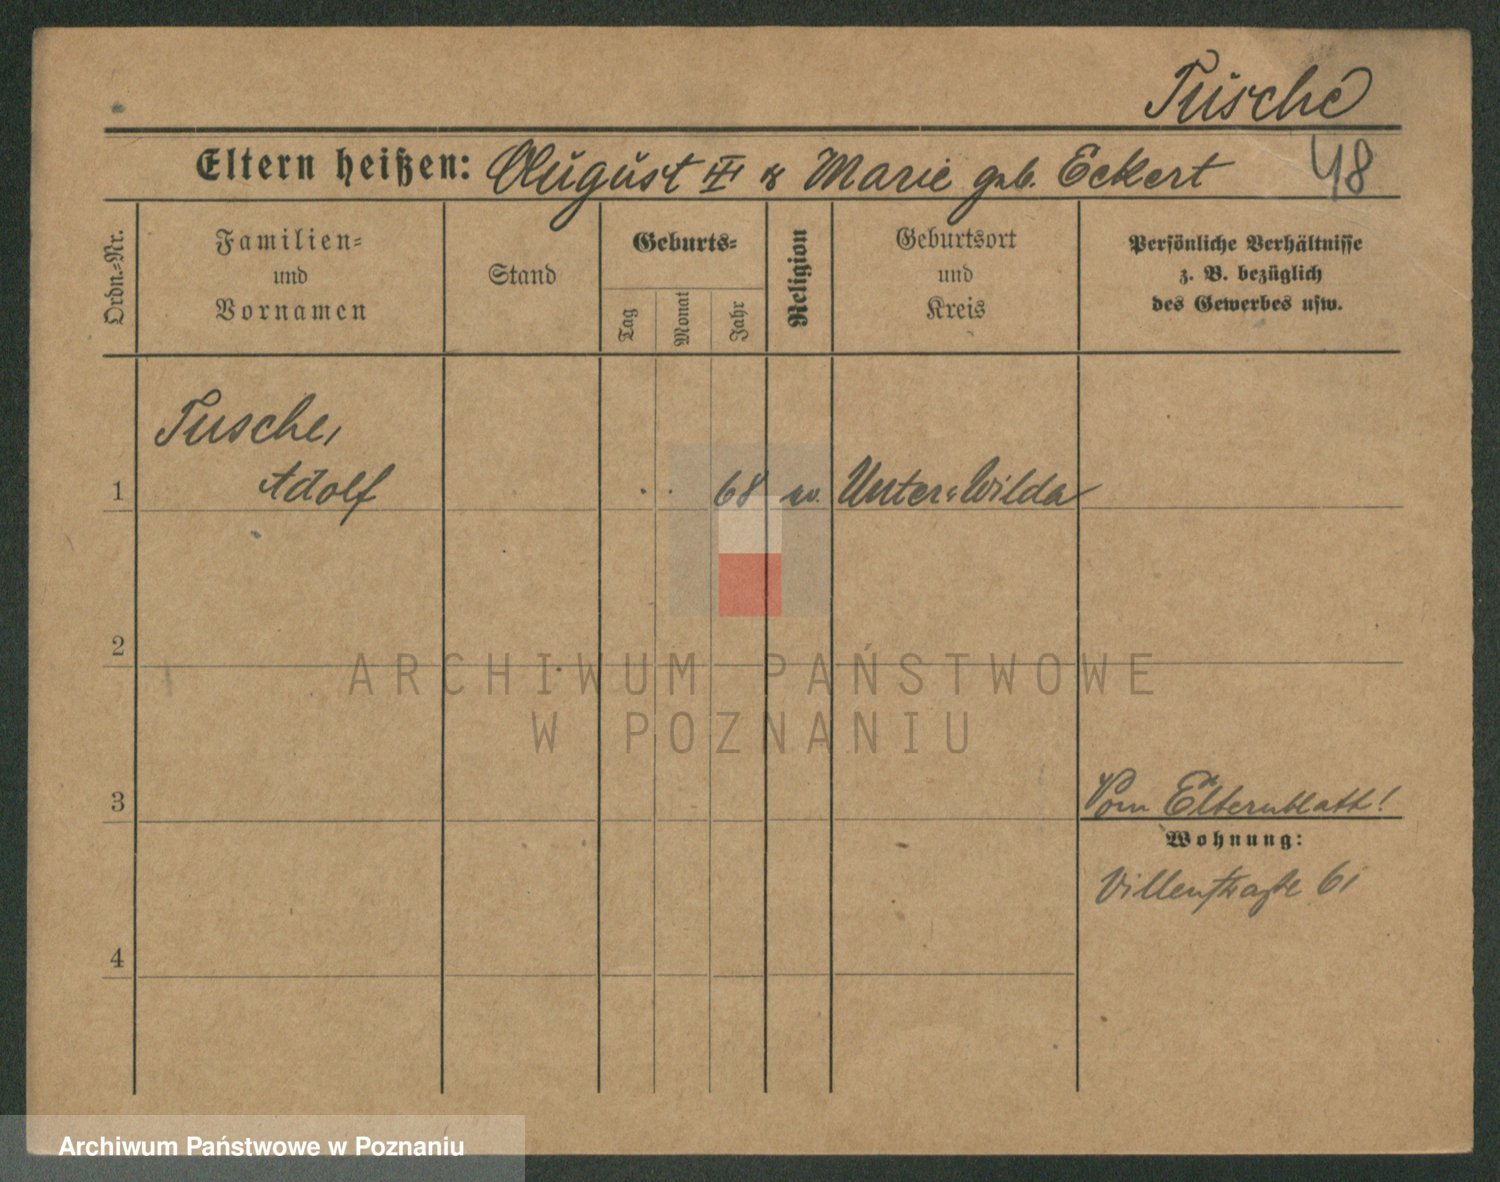 Tusche
Eltern heißen: August III & Marie geb. Eckert 48
Ordn.-Nr.
Familien-
und
Vornamen
Stand
Geburts-
Tag
Monat
Jahr
Religion
Geburtsort
und
Kreis
Persönliche Verhältnisse
z. B. bezüglich
des Gewerbes usw.
Tusche,
1 Adolf . . 68 ev. Unter-Wilda
2
ARCHIWUM PAŃSTWOWE
W POZNANIU
3 Vom Elternblatt!
Wohnung:
Villenstraße
4
Archiwum Państwowe w Poznaniu